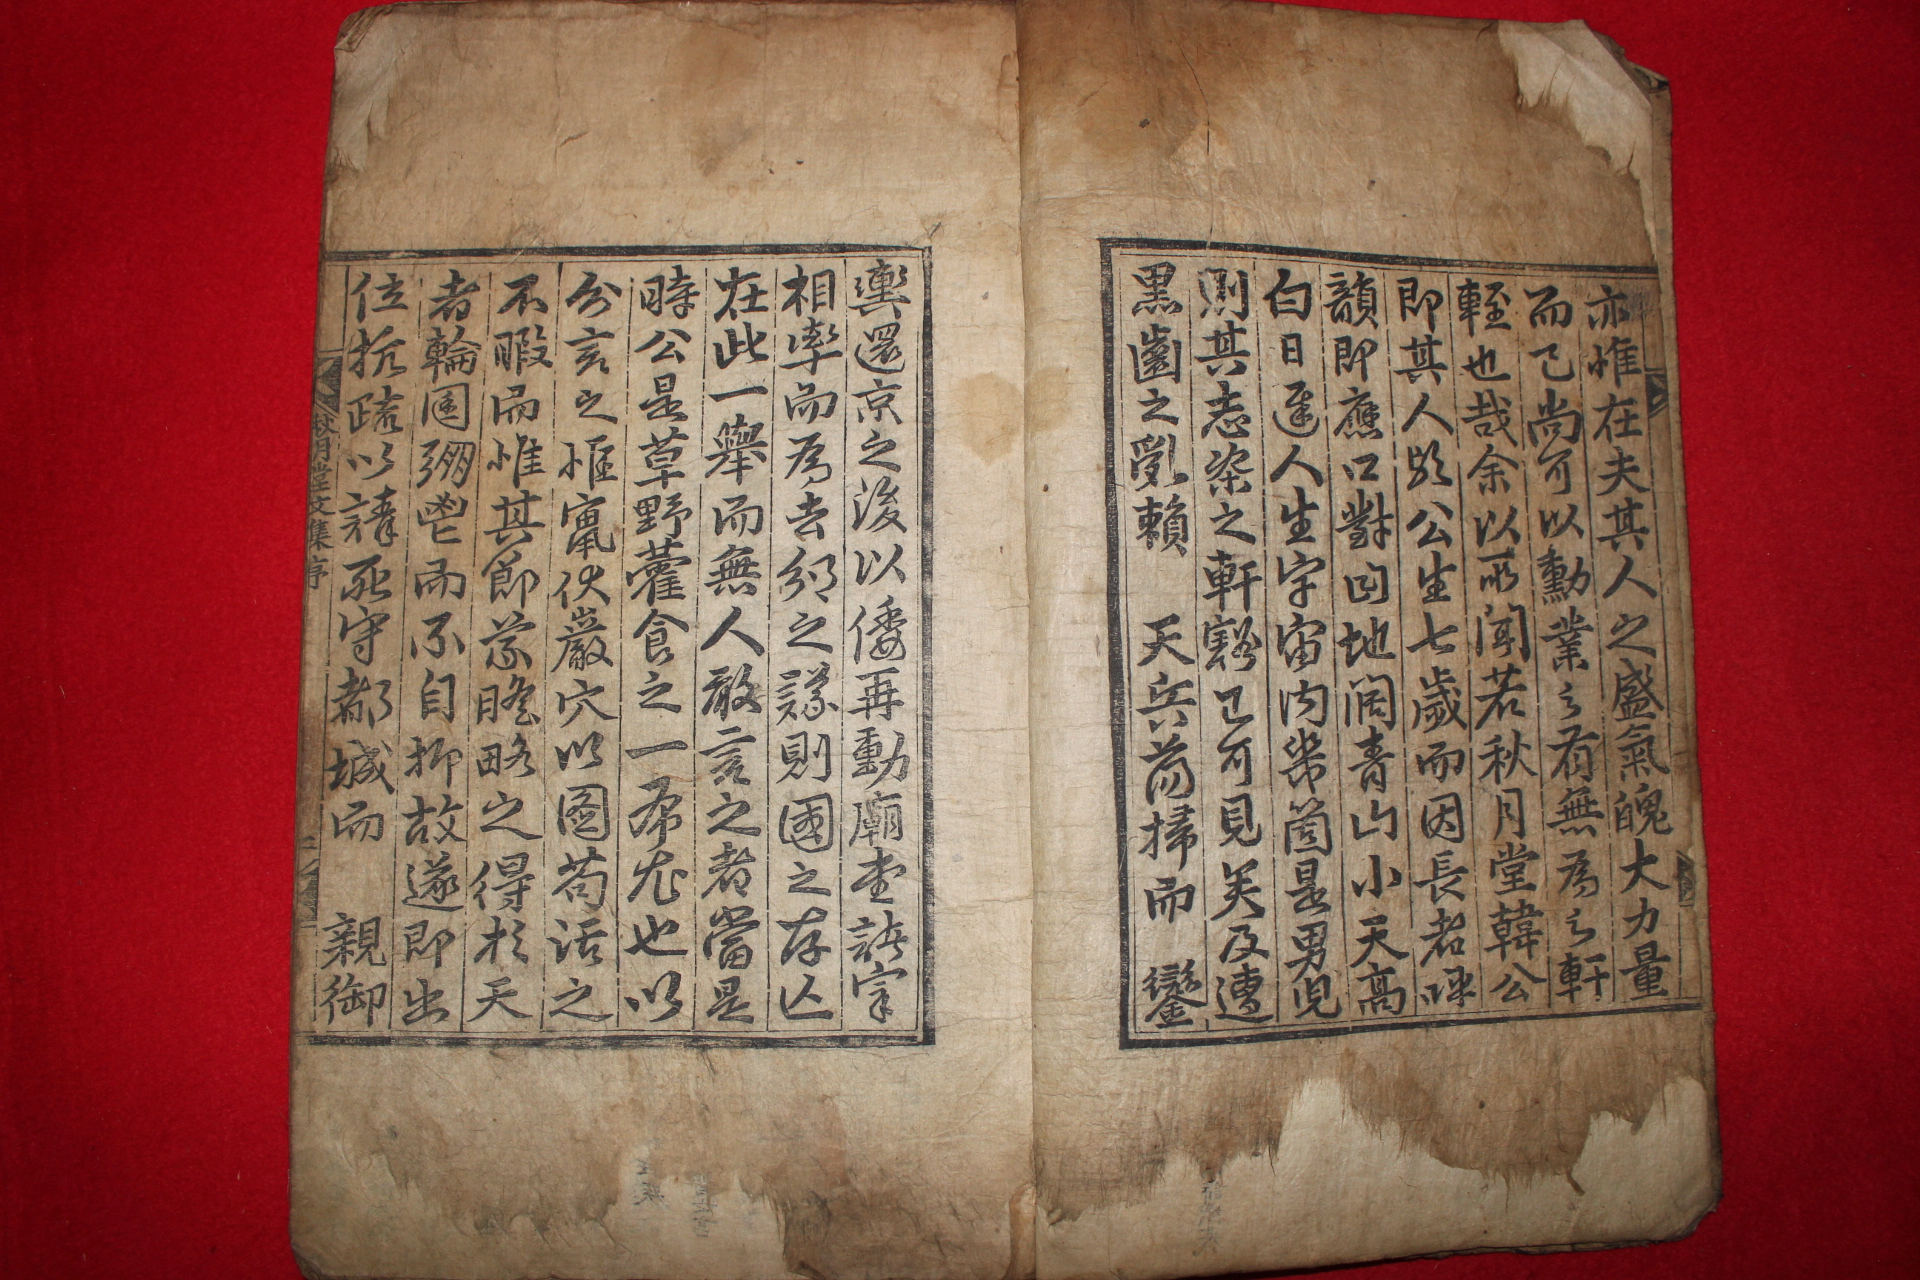 亦惟在夫其人之盛氣魄大力量
而已尚可以勳業之有無為之軒
輊也哉余以所聞若秋月堂韓公
即其人歟公生七歲而因長者呼
韻即應口對曰地闊青山小天高
白日遲人生宇宙內幾箇是男兒
則其志槩之軒豁已可見矣及遭
黑齒之亂賴 天兵蕩掃而 鑾
輿還京之後以倭再動廟堂諸宰
相率而為去邠之議則國之存亡
在此一擧而無人敢言之者當是
時公是草野藿食之一布衣也以
分言之惟竄伏巖穴以圖苟活之
不暇而惟其節義膽略之得於天
者輪囷弸鬱而不自抑故遂即出
位抗疏以請死守都城而 親御
秋月堂文集序